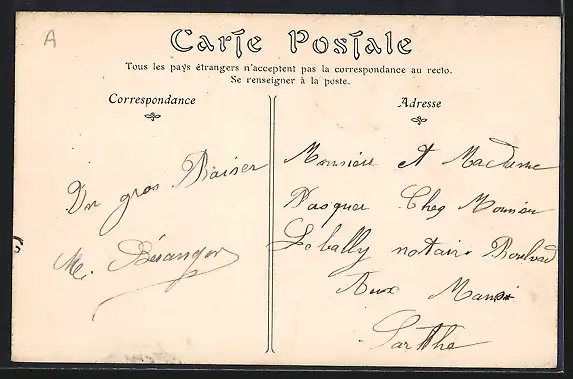 A
Carte Postale
Tous les pays étrangers n'acceptent pas la correspondance au recto.
Se renseigner à la poste.
Correspondance
Un gros Baiser
M. Bésanger
Adresse
Monsieu et Madame
Pasquer Chez Monsieu
notaire Boulvad
Aux Mans
Sarthe